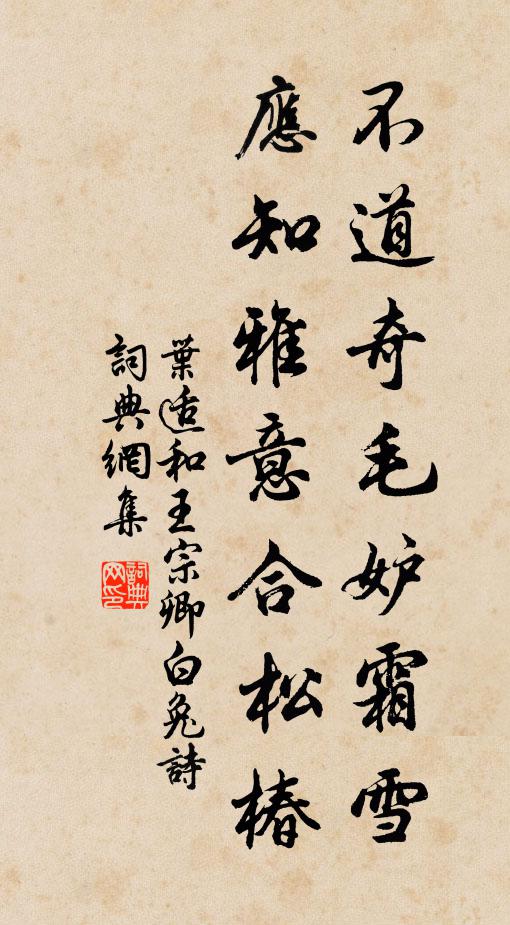 不道奇毛妒霜雪
應知雅意合松椿
葉适和王宗卿白兔詩
詞典網集
詞典
网印